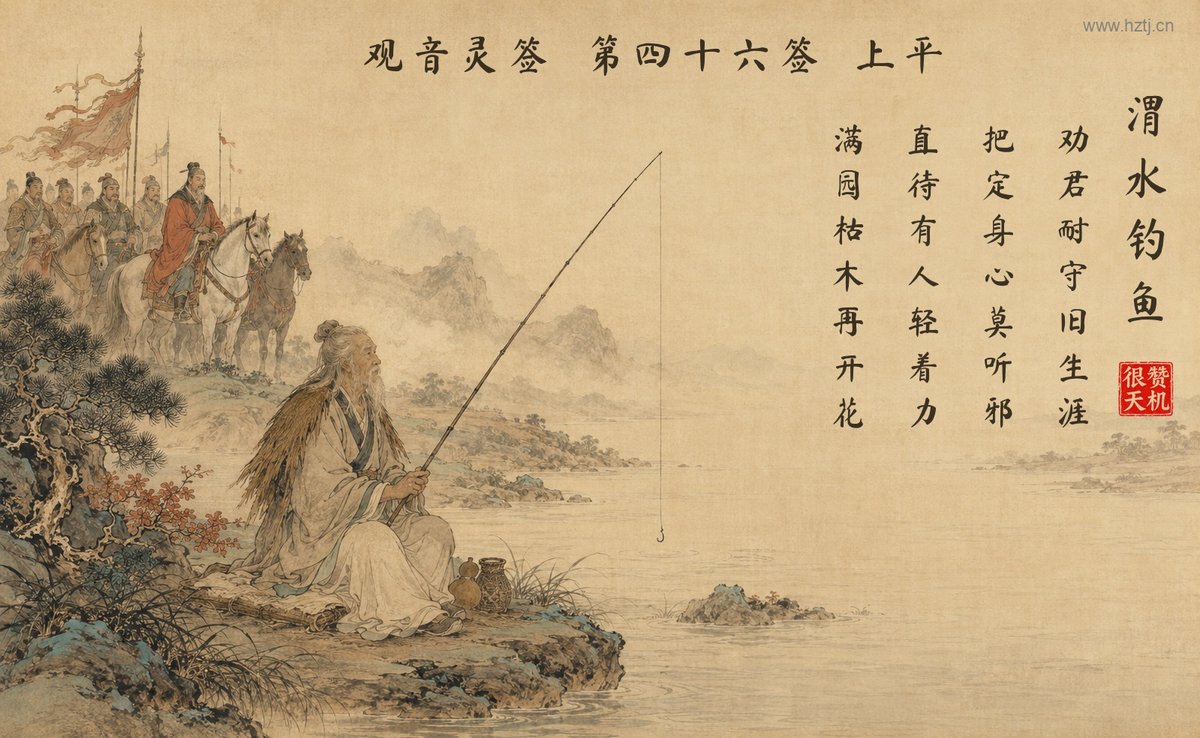 www.hztj.cn
观音灵签 第四十六签 上平
渭水钓鱼
劝君耐守旧生涯
把定身心莫听邪
直待有人轻着力
满园枯木再开花
赞机
很天